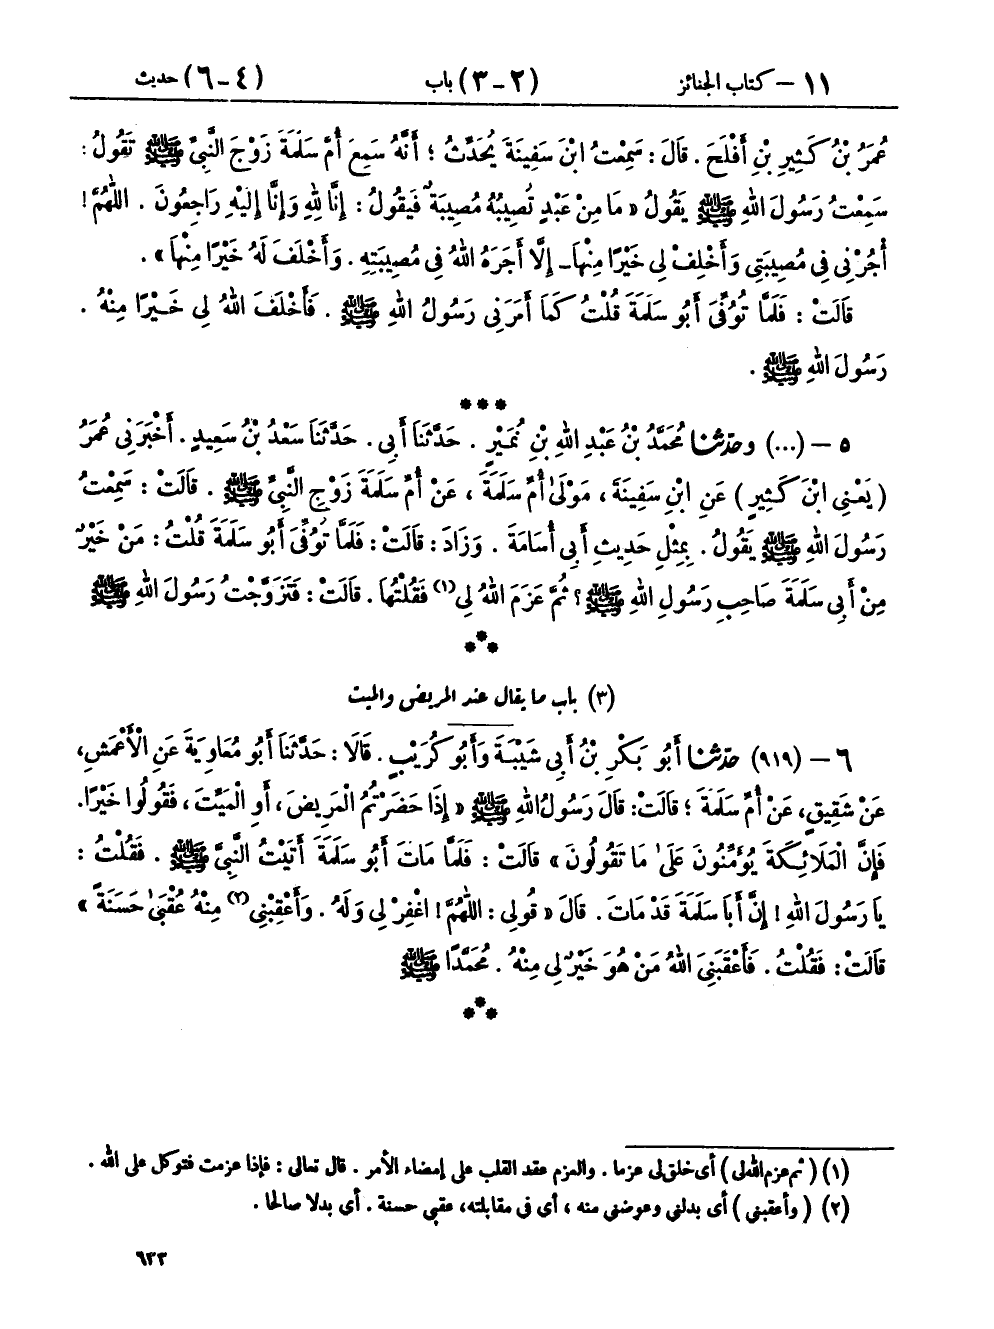 ١١ - كتاب الجنائز (٢ - ٣) باب (٤ - ٦) حديث
عُمَرُ بْنُ كَثِيرِ بْنِ أَفْلَحَ . قَالَ : سَمِعْتُ ابْنَ سَفِينَةَ يُحَدِّثُ ؛ أَنَّهُ سَمِعَ أُمَّ سَلَمَةَ زَوْجَ النَّبِيِّ ﷺ تَقُولُ :
سَمِعْتُ رَسُولَ اللهِ ﷺ يَقُولُ « مَا مِنْ عَبْدٍ تُصِيبُهُ مُصِيبَةٌ فَيَقُولُ : إِنَّا لِلهِ وَإِنَّا إِلَيْهِ رَاجِعُونَ . اللَّهُمَّ !
أْجُرْنِي فِي مُصِيبَتِي وَأَخْلِفْ لِي خَيْرًا مِنْهَا - إِلَّا أَجَرَهُ اللهُ فِي مُصِيبَتِهِ . وَأَخْلَفَ لَهُ خَيْرًا مِنْهَا » .
قَالَتْ : فَلَمَّا تُوُفِّيَ أَبُو سَلَمَةَ قُلْتُ كَمَا أَمَرَنِي رَسُولُ اللهِ ﷺ . فَأَخْلَفَ اللهُ لِي خَيْرًا مِنْهُ .
رَسُولَ اللهِ ﷺ .
***
٥ - (...) وحدثنا مُحَمَّدُ بْنُ عَبْدِ اللهِ بْنِ نُمَيْرٍ . حَدَّثَنَا أَبِي . حَدَّثَنَا سَعْدُ بْنُ سَعِيدٍ . أَخْبَرَنِي عُمَرُ
( يَعْنِي ابْنَ كَثِيرٍ ) عَنِ ابْنِ سَفِينَةَ ، مَوْلَى أُمِّ سَلَمَةَ ، عَنْ أُمِّ سَلَمَةَ زَوْجِ النَّبِيِّ ﷺ . قَالَتْ : سَمِعْتُ
رَسُولَ اللهِ ﷺ يَقُولُ . بِمِثْلِ حَدِيثِ أَبِي أُسَامَةَ . وَزَادَ : قَالَتْ : فَلَمَّا تُوُفِّيَ أَبُو سَلَمَةَ قُلْتُ : مَنْ خَيْرٌ
مِنْ أَبِي سَلَمَةَ صَاحِبِ رَسُولِ اللهِ ﷺ ؟ ثُمَّ عَزَمَ اللهُ لِي(١) فَقُلْتُهَا . قَالَتْ : فَتَزَوَّجْتُ رَسُولَ اللهِ ﷺ
***
(٣) باب ما يقال عند المريض والميت
٦ - (٩١٩) حدثنا أَبُو بَكْرِ بْنُ أَبِي شَيْبَةَ وَأَبُو كُرَيْبٍ . قَالَا : حَدَّثَنَا أَبُو مُعَاوِيَةَ عَنِ الْأَعْمَشِ ،
عَنْ شَقِيقٍ ، عَنْ أُمِّ سَلَمَةَ ؛ قَالَتْ : قَالَ رَسُولُ اللهِ ﷺ « إِذَا حَضَرْتُمُ الْمَرِيضَ ، أَوِ الْمَيِّتَ ، فَقُولُوا خَيْرًا .
فَإِنَّ الْمَلَائِكَةَ يُؤَمِّنُونَ عَلَى مَا تَقُولُونَ » قَالَتْ : فَلَمَّا مَاتَ أَبُو سَلَمَةَ أَتَيْتُ النَّبِيَّ ﷺ . فَقُلْتُ :
يَا رَسُولَ اللهِ ! إِنَّ أَبَا سَلَمَةَ قَدْ مَاتَ . قَالَ « قُولِي : اللَّهُمَّ ! اغْفِرْ لِي وَلَهُ . وَأَعْقِبْنِي(٢) مِنْهُ عُقْبَى حَسَنَةً »
قَالَتْ : فَقُلْتُ . فَأَعْقَبَنِيَ اللهُ مَنْ هُوَ خَيْرٌ لِي مِنْهُ . مُحَمَّدًا ﷺ
***
(١) ( ثم عزم الله لى ) أى خلق لى عزما . والعزم عقد القلب على إمضاء الأمر . قال تعالى : فإذا عزمت فتوكل على الله .
(٢) ( وأعقبنى ) أى بدلنى وعوضنى منه ، أى فى مقابلته ، عقبى حسنة . أى بدلا صالحا .
٦٣٣